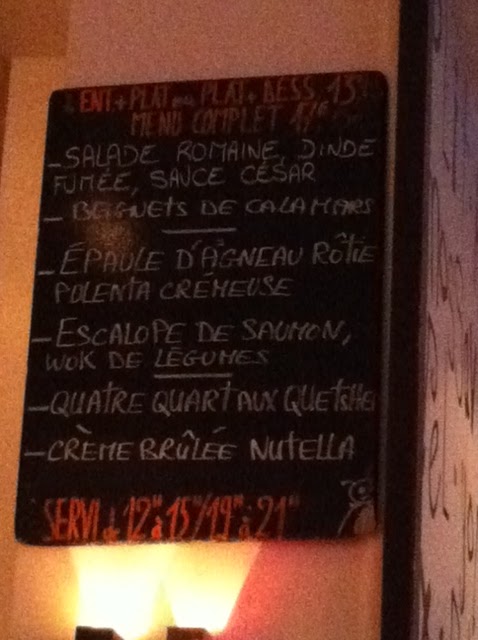 ENT + PLAT ou PLAT + DESS 15
MENU COMPLET 17€
- SALADE ROMAINE, DINDE
FUMÉE, SAUCE CÉSAR
- BEIGNETS DE CALAMARS
- ÉPAULE D'AGNEAU RÔTIE
POLENTA CRÉMEUSE
- ESCALOPE DE SAUMON,
WOK DE LÉGUMES
- QUATRE QUART AUX QUETSHES
- CRÈME BRÛLÉE NUTELLA
SERVI de 12H à 15H/19H à 21H